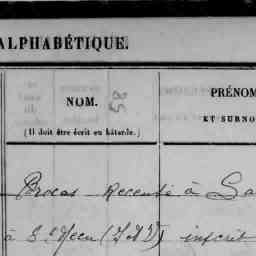 ALPHABÉTIQUE.
NOM.
(Il doit être écrit en bâtarde.)
58
PRÉNOM
ET SURNO
Brocas Recensé à Sa
à St Méen (I & V) inscrit